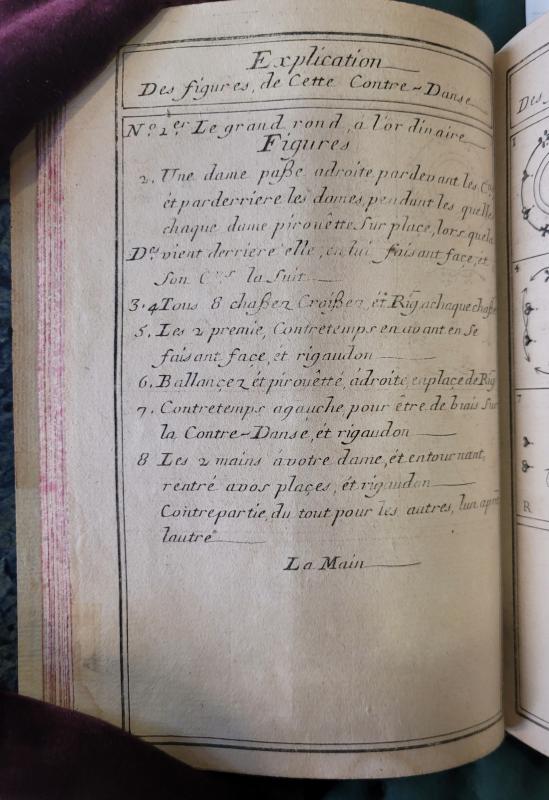 Explication
Des figures, de Cette Contre-Danse
No. 1er Le grand rond, a l'ordinaire
Figures
2. Une dame paße adroite pardevant les
ét parderriere les dames, pendant les quelles
chaque dame pirouëtte Sur place, lors quela
De. vient derriere elle, en lui faisant façe, et
Son Cer la suit
3.4 Tous 8 chaßez Croißez, ét Rig achaque chaße
5. Les 2 premie, Contretemps en avant en Se
faisant façe, ét rigaudon
6. Ballançez ét pirouëtté, ádroite, enplaçe de Rig
7. Contretemps agauche, pour être de biais Sur
la Contre-Danse, ét rigaudon
8 Les 2 mains ávotre dame, ét entournant,
rentré avos plaçes, ét rigaudon
Contrepartie, du tout pour les autres, lun apre
lautre
La Main
Des
1
4
7
R